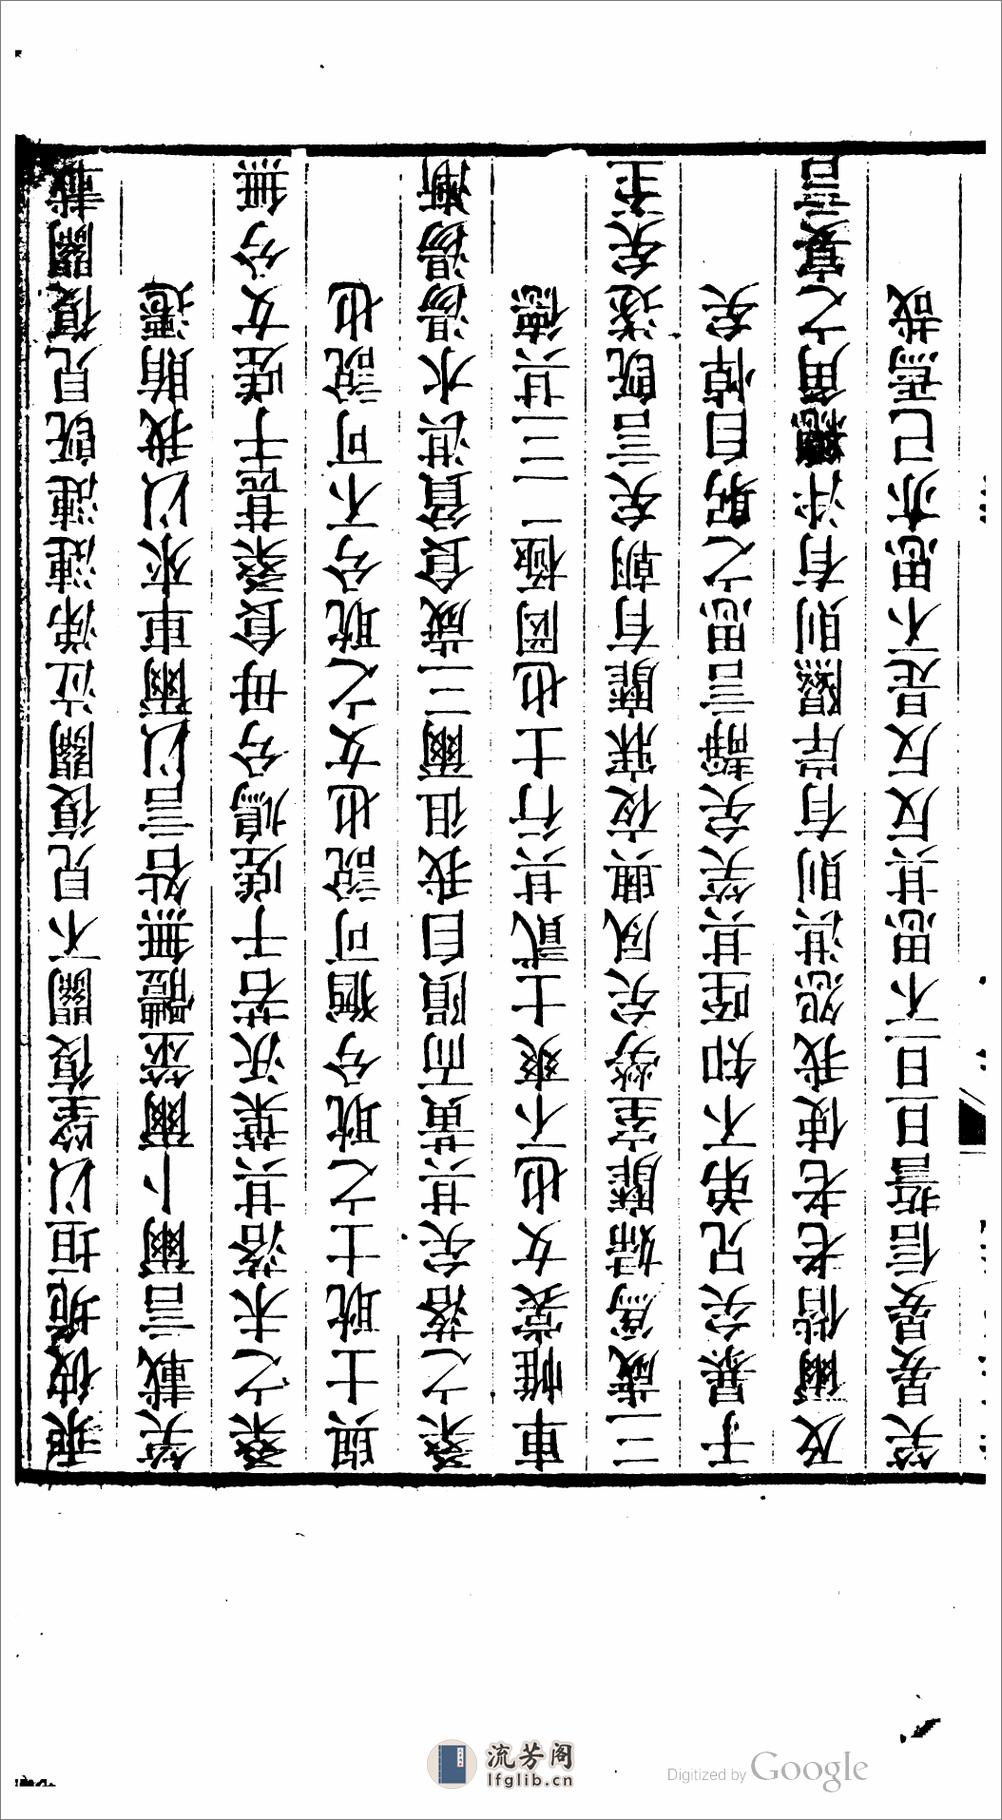 乘彼垝垣以望復關不見復關泣涕漣漣旣見復關載
笑載言爾卜爾筮體無咎言以爾車來以我賄遷
桑之未落其葉沃若于嗟鳩兮母食桑葚于嗟女兮無
與士耽士之耽兮猶可說也女之耽兮不可說也
桑之落矣其黃而隕自我徂爾三歲食貧淇水湯湯漸
車帷裳女也不爽士貳其行士也罔極二三其德
三歲爲婦靡室勞矣夙興夜寐靡有朝矣言旣遂矣至
于暴矣兄弟不知咥其笑矣靜言思之躬自悼矣
及爾偕老老使我怨淇則有岸隰則有泮總角之宴言
笑晏晏信誓旦旦不思其反反是不思亦已焉哉
流芳阁
lfglib.cn
Digitized by Google